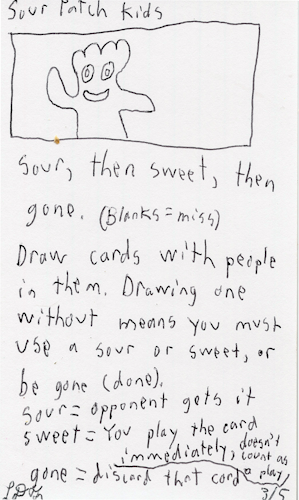 Sour Patch Kids
Sour, then sweet, then
gone. (Blanks=miss)
Draw cards with people
in them. Drawing one
without means you must
use a sour or sweet, or
be gone (done).
Sour= opponent gets it
sweet= You play the card
immediately, doesn't
count as
a play!
gone = discard that card
3/5